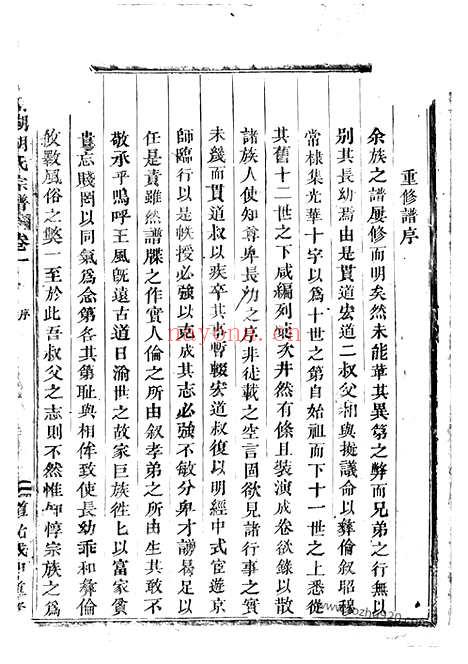 重修譜序
余族之譜屢修而明矣然未能革其異第之弊而兄弟之行無以
別其長幼焉由是貫道宏道二叔父相與擬議命以彝倫叙昭穆
常棣集光華十字以為十世之第自始祖而下十一世之上悉從
其舊十二世之下咸編列班次井然有條且裝演成卷欲錄以散
諸族人使知尊卑長幼之序非徒載之空言固欲見諸行事之實
未幾而貫道叔以疾卒其事暫輟宏道叔復以明經中式宦遊京
師臨行以是帙授必強以克成其志必強不敏分卑才譾曷足以
任是責雖然譜牒之作實人倫之所由叙孝弟之所由生其敢不
敬承乎嗚呼王風既遠古道日渝世之故家巨族徃匕以富家貧
貴忘賤罔以同氣為念第各其第恥與相侔致使長幼乖和彝倫
攸斁風俗之獘一至於此吾叔父之志則不然惟知惇宗族之為
湖胡氏宗譜 卷一
序
naycng.cn
bozhu920.com